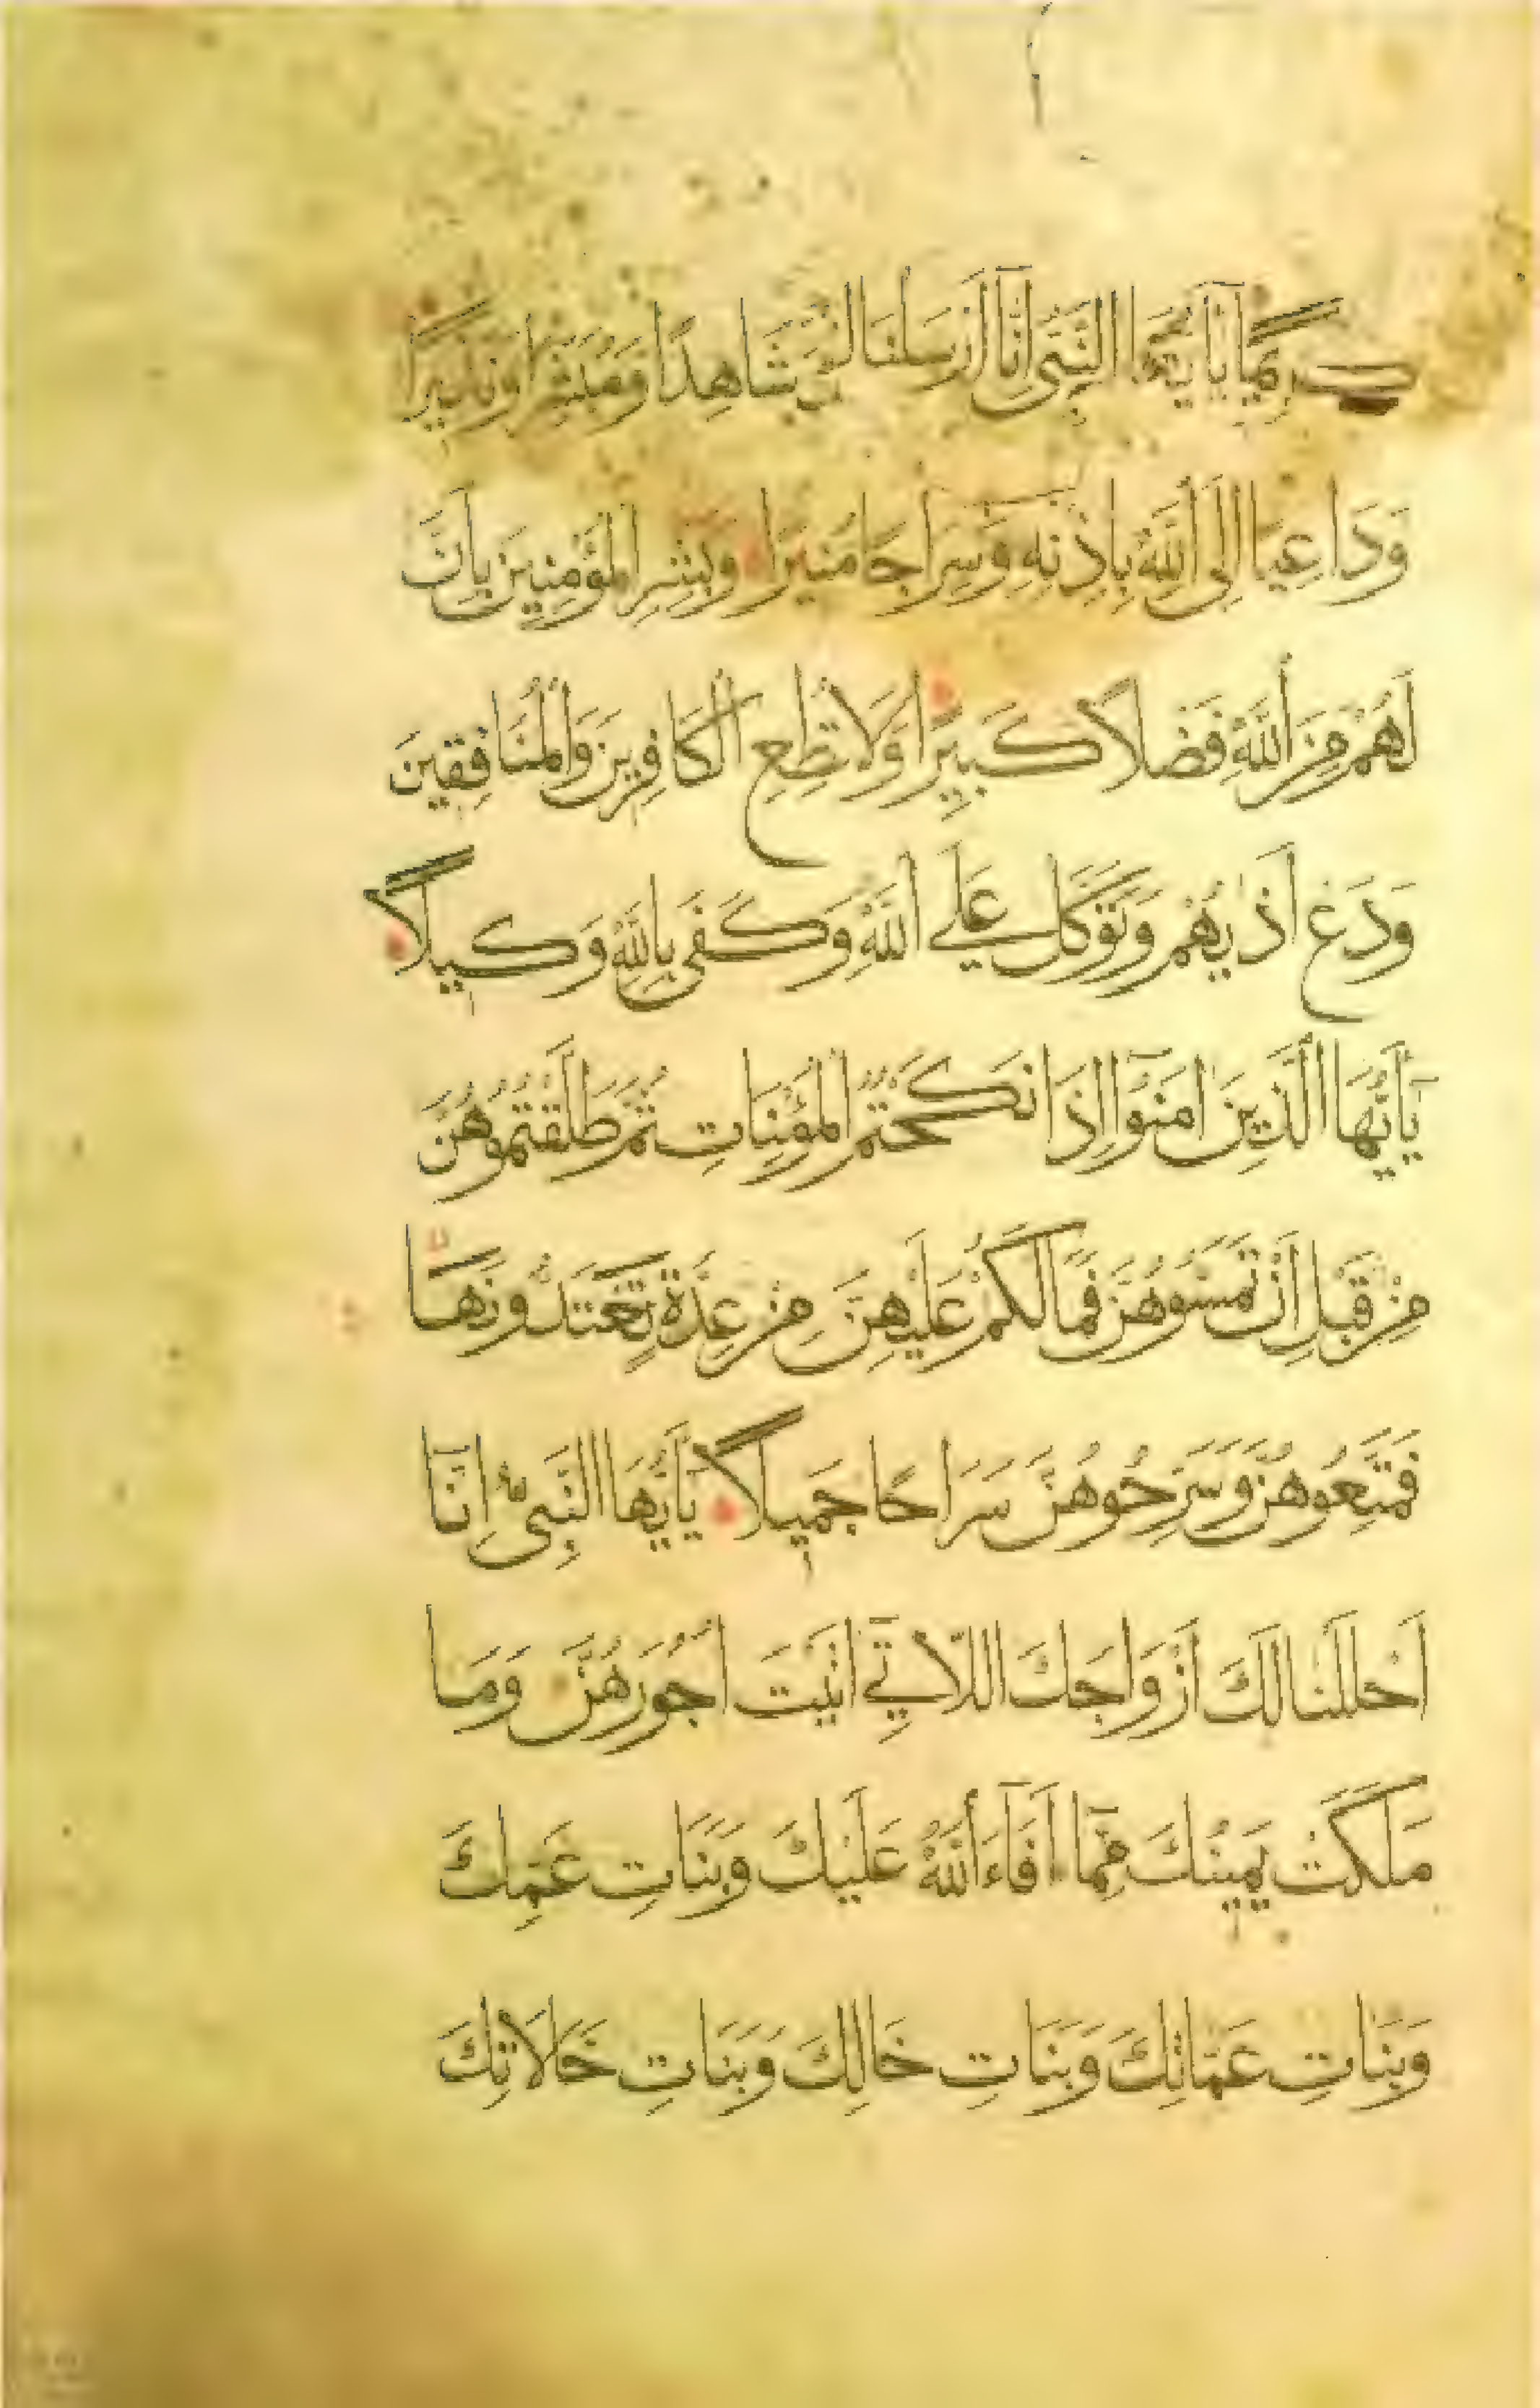 كريما يَا أَيُّهَا النَّبِيُّ إِنَّا أَرْسَلْنَاكَ شَاهِدًا وَمُبَشِّرًا وَنَذِيرًا
وَدَاعِيًا إِلَى اللَّهِ بِإِذْنِهِ وَسِرَاجًا مُنِيرًا وَبَشِّرِ الْمُؤْمِنِينَ بِأَنَّ
لَهُمْ مِنَ اللَّهِ فَضْلًا كَبِيرًا وَلَا تُطِعِ الْكَافِرِينَ وَالْمُنَافِقِينَ
وَدَعْ أَذَيهُمْ وَتَوَكَّلْ عَلَى اللَّهِ وَكَفَى بِاللَّهِ وَكِيلًا
يَا أَيُّهَا الَّذِينَ امَنُوا إِذَا نَكَحْتُمُ الْمُؤْمِنَاتِ ثُمَّ طَلَّقْتُمُوهُنَّ
مِنْ قَبْلِ أَنْ تَمَسُّوهُنَّ فَمَا لَكُمْ عَلَيْهِنَّ مِنْ عِدَّةٍ تَعْتَدُّونَهَا
فَمَتِّعُوهُنَّ وَسَرِّحُوهُنَّ سَرَاحًا جَمِيلًا يَا أَيُّهَا النَّبِيُّ إِنَّا
أَحْلَلْنَا لَكَ أَزْوَاجَكَ اللَّاتِي اتَيْتَ أُجُورَهُنَّ وَمَا
مَلَكَتْ يَمِينُكَ مِمَّا أَفَاءَ اللَّهُ عَلَيْكَ وَبَنَاتِ عَمِّكَ
وَبَنَاتِ عَمَّاتِكَ وَبَنَاتِ خَالِكَ وَبَنَاتِ خَالَاتِكَ